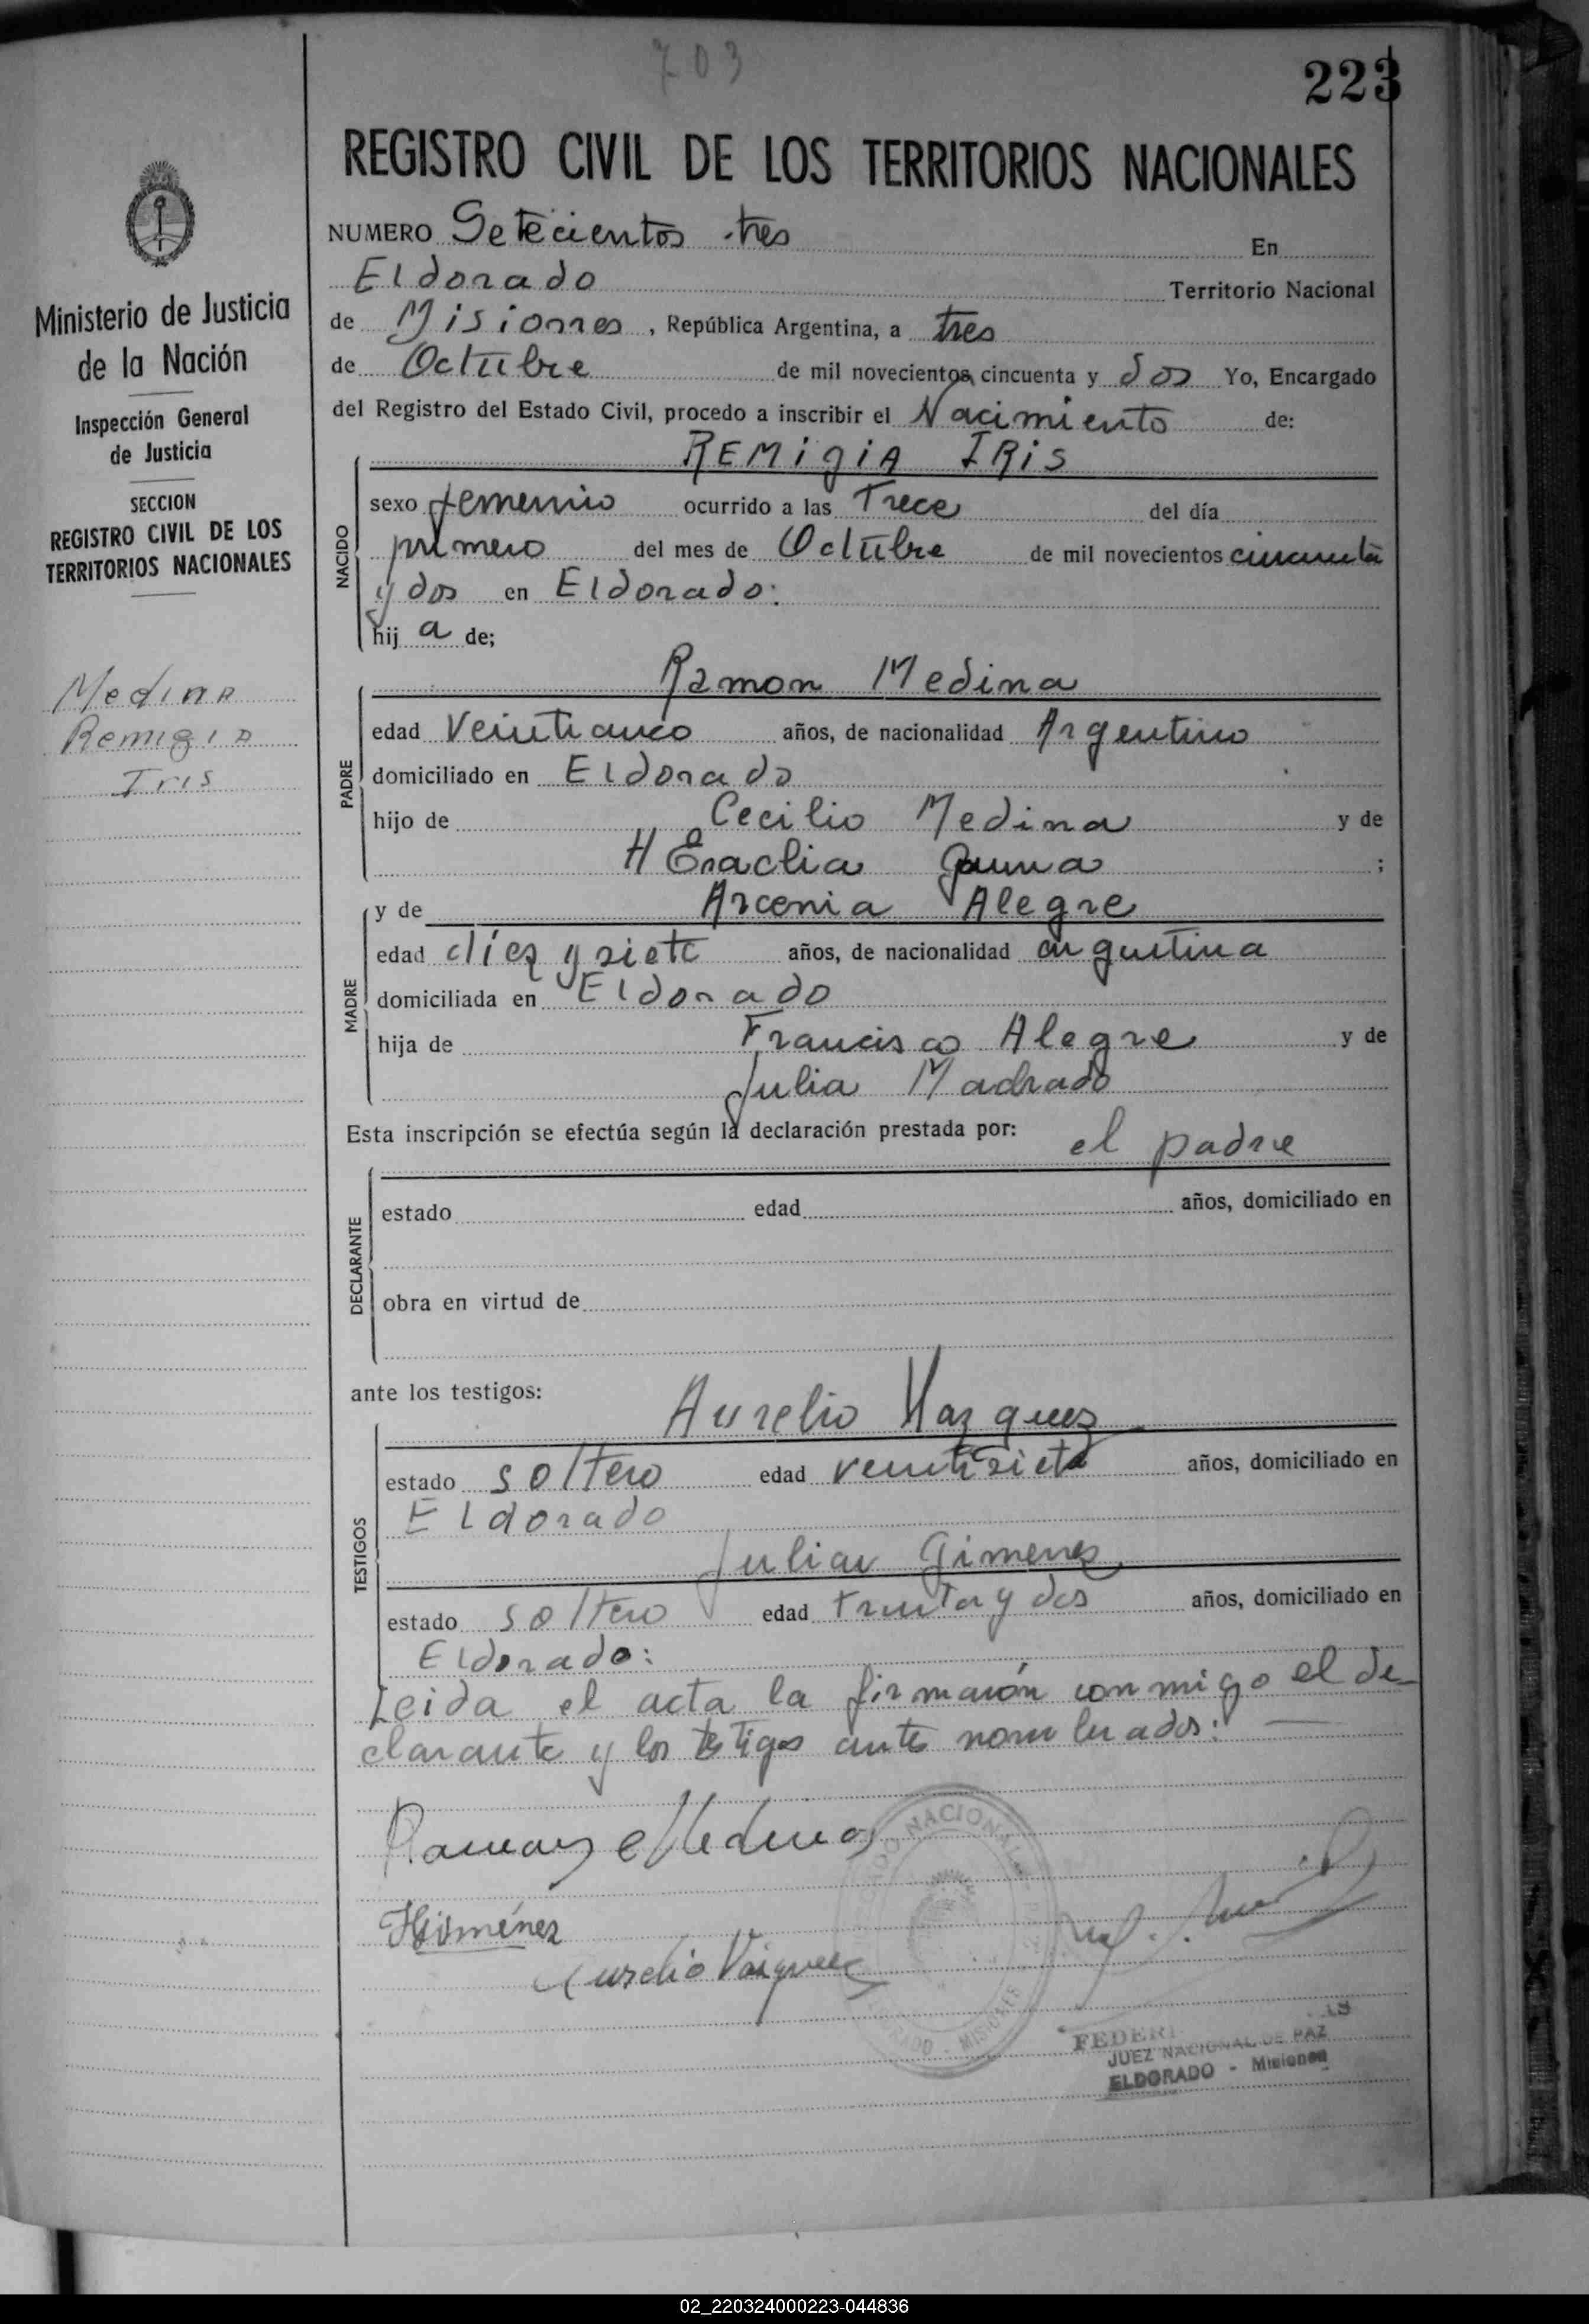 703
223
REGISTRO CIVIL DE LOS TERRITORIOS NACIONALES
Ministerio de Justicia
de la Nación
Inspección General
de Justicia
SECCION
REGISTRO CIVIL DE LOS
TERRITORIOS NACIONALES
Medina
Remigia
Iris
NUMERO Setecientos tres En
Eldorado Territorio Nacional
de Misiones, República Argentina, a tres
de Octubre de mil novecientos cincuenta y dos Yo, Encargado
del Registro del Estado Civil, procedo a inscribir el Nacimiento de:
REMigiA IRis
NACIDO
sexo femenino ocurrido a las Trece del día
primero del mes de Octubre de mil novecientos cincuenta
y dos en Eldorado:
hij a de;
Ramon Medina
PADRE
edad Veinticinco años, de nacionalidad Argentino
domiciliado en Eldorado
hijo de Cecilio Medina y de
H Eraclia ;
y de Arcenia Alegre
MADRE
edad diez y siete años, de nacionalidad argentina
domiciliada en Eldorado
hija de Francisco Alegre y de
Julia Machado
Esta inscripción se efectúa según la declaración prestada por: el padre
DECLARANTE
estado edad años, domiciliado en
obra en virtud de
ante los testigos: Aurelio Vazquez
TESTIGOS
estado soltero edad veintisiete años, domiciliado en
Eldorado
Julian Gimenes
estado soltero edad treinta y dos años, domiciliado en
Eldorado:
Leida el acta la firmarón conmigo el de-
clarante y los testigos ante nombrados:
Ramon Medina
NACIONAL
Himénez
Aurelio Vázquez
MISIONES
FEDERI
JUEZ NACIONAL DE PAZ
ELDORADO - Misiones
02_220324000223-044836